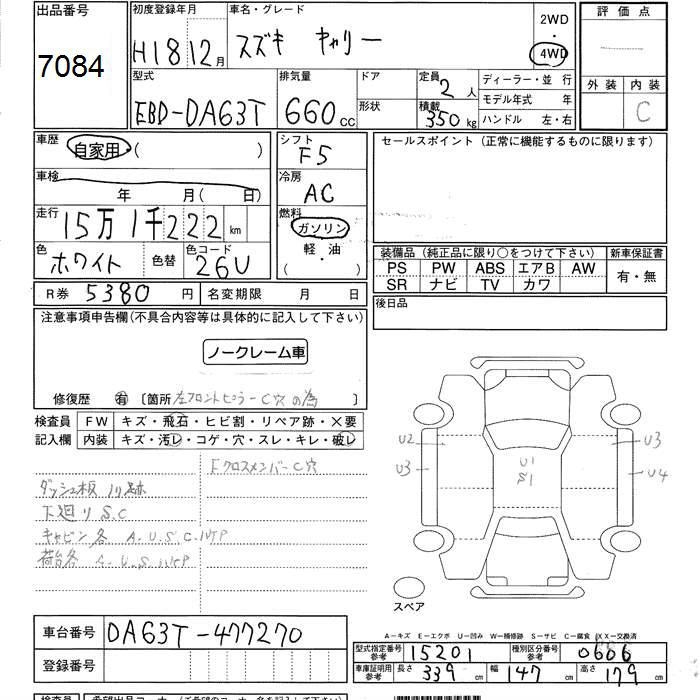 出品番号
7084
初度登録年月
H18 12月
車名・グレード
スズキ キャリー
2WD
・
4WD
評価点
外装 内装
C
型式
EBD-DA63T
排気量
660cc
ドア
形状
定員
2人
積載
350kg
ディーラー・並 行
モデル年式 年
ハンドル 左・右
車歴
自家用 ( )
車検
年 月 ( 日)
走行
15万1千222km
色
ホワイト
色替
色コード
26U
シフト
F5
冷房
AC
燃料
ガソリン
軽・油
( )
セールスポイント (正常に機能するものに限ります)
装備品 (純正品に限り○をつけて下さい)
新車保証書
PS PW ABS エアB AW
SR ナビ TV カワ
有・無
R券 5380円
名変期限 月 日
後日品
注意事項申告欄(不具合内容等は具体的に記入して下さい)
ノークレーム車
修復歴 有 [箇所 左フロントピラーC穴の為]
検査員 FW キズ・飛石・ヒビ割・リペア跡・×要
記入欄 内装 キズ・汚レ・コゲ・穴・スレ・キレ・破レ
Fクロスメンバー C穴
ダッシュ板 ノリ跡
下廻り S.C
キャビン各 A.U.S.C.
荷台各 A.U.S.
U2
U3
U1
S1
U3
U4
スペア
A-キズ E-エクボ U-凹み W-補修跡 S-サビ C-腐食 XX-交換済
車台番号 DA63T-477270
登録番号
型式指定番号
参考
15201
種別区分番号
参考
0606
車庫証明用
参考
長さ 339cm 幅 147cm 高さ 179cm